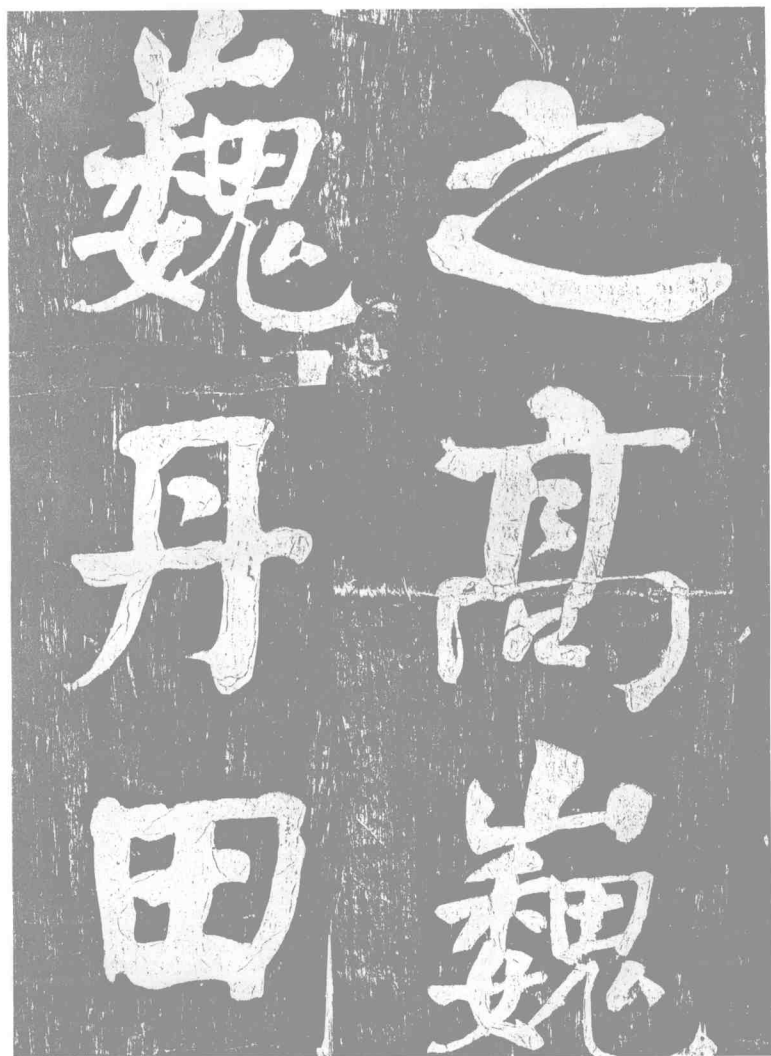 之髙巍
巍丹田